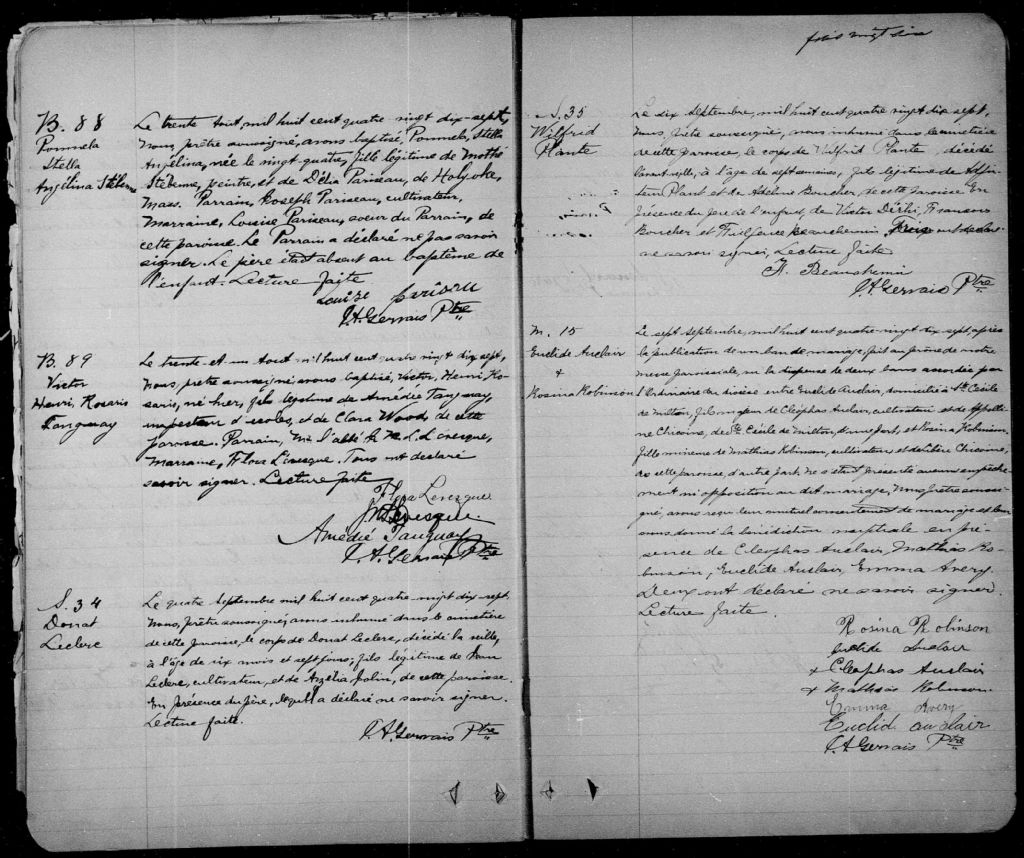 B. 88
Pommela
Stella
Angélina Stébenne
Le trente Aout, mil huit cent quatre vingt dix-sept,
Nous, prêtre soussigné, avons baptisé, Pommela, Stella
Angélina, née le vingt-quatre, fille légitime de Mothé
Stébenne, peintre, et de Délia Pariseau, de Holyoke,
Mass. Parrain, Joseph Pariseau, cultivateur,
Marraine, Louise Pariseau, soeur du Parrain, de
cette paroisse. Le Parrain a déclaré ne pas savoir
signer. Le père était absent au baptême de
l'enfant. Lecture faite
Louise Parisau
J. A. Gervais Ptre
B. 89
Victor
Henri, Rosaris
Tanguay
Le trente et un Aout mil huit cent quatre vingt dix sept,
Nous, prêtre soussigné, avons baptisé, Victor, Henri, Ro-
saris, né hier, fils légitime de Amédée Tanguay,
inspecteur d'écoles, et de Clara Wood, de cette
paroisse. Parrain, Mr l'abbé L. Levesque,
Marraine, Flora Lévesque. Tous ont déclaré
savoir signer. Lecture faite
Flora Levesque
Levesque
Amédée Tanguay
J. A. Gervais Ptre
S. 34
Donat
Leclerc
Le quatre Septembre mil huit cent quatre-vingt dix sept
Nous, prêtre soussigné, avons inhumé dans le cimetière
de cette paroisse, le corps de Donat Leclerc, décédé la veille,
à l'âge de six mois et sept jours; fils légitime de
Leclerc, cultivateur, et de Azélia Jolin, de cette paroisse.
En présence du père, lequel a déclaré ne savoir signer.
Lecture faite.
J. A. Gervais Ptre
folio vingt
S. 35
Wilfrid
Plante
Le dix Septembre, mil huit cent quatre vingt dix sept,
Nous, prêtre soussigné, avons inhumé dans le cimetière
de cette paroisse, le corps de Wilfrid Plante, décédé
l'avant veille, à l'âge de sept semaines, fils légitime de
Plant et de Adeline Boucher, de cette paroisse. En
présence du père de l'enfant, de Victor, François
Boucher et Beauchemin. Trois ont déclaré
ne savoir signer, Lecture faite
Beauchemin
J. A. Gervais Ptre
M. 15
Euclide Auclair
+
Rosina Robinson
Le sept Septembre, mil huit cent quatre-vingt dix sept, après
la publication de un ban de mariage, fait au prône de notre
messe paroissiale, vu la dispense de deux bans accordée par
l'Ordinaire du diocèse entre Euclide Auclair, domicilié à Ste Cécile
de Milton, fils majeur de Cléophas Auclair, cultivateur et de Appoli-
ne Chicoine, de Ste Cécile de Milton, d'une part, et Rosina Robinson
fille mineure de Mathias Robinson, cultivateur et de Chicoine,
de cette paroisse d'autre part. Ne s'étant présenté aucun empêche-
ment ni opposition au dit mariage, Nous prêtre soussi-
gné, avons reçu leur mutuel consentement de mariage et leur
avons donné la bénédiction nuptiale en pré-
sence de Cléophas Auclair, Mathias Ro-
binson, Euclide Auclair, Emma Avery.
Deux ont déclaré ne savoir signer.
Lecture faite
Rosina Robinson
Auclair
+ Cléophas Auclair
+ Mathias Robinson
Emma Avery
Euclid auclair
J. A. Gervais Ptre